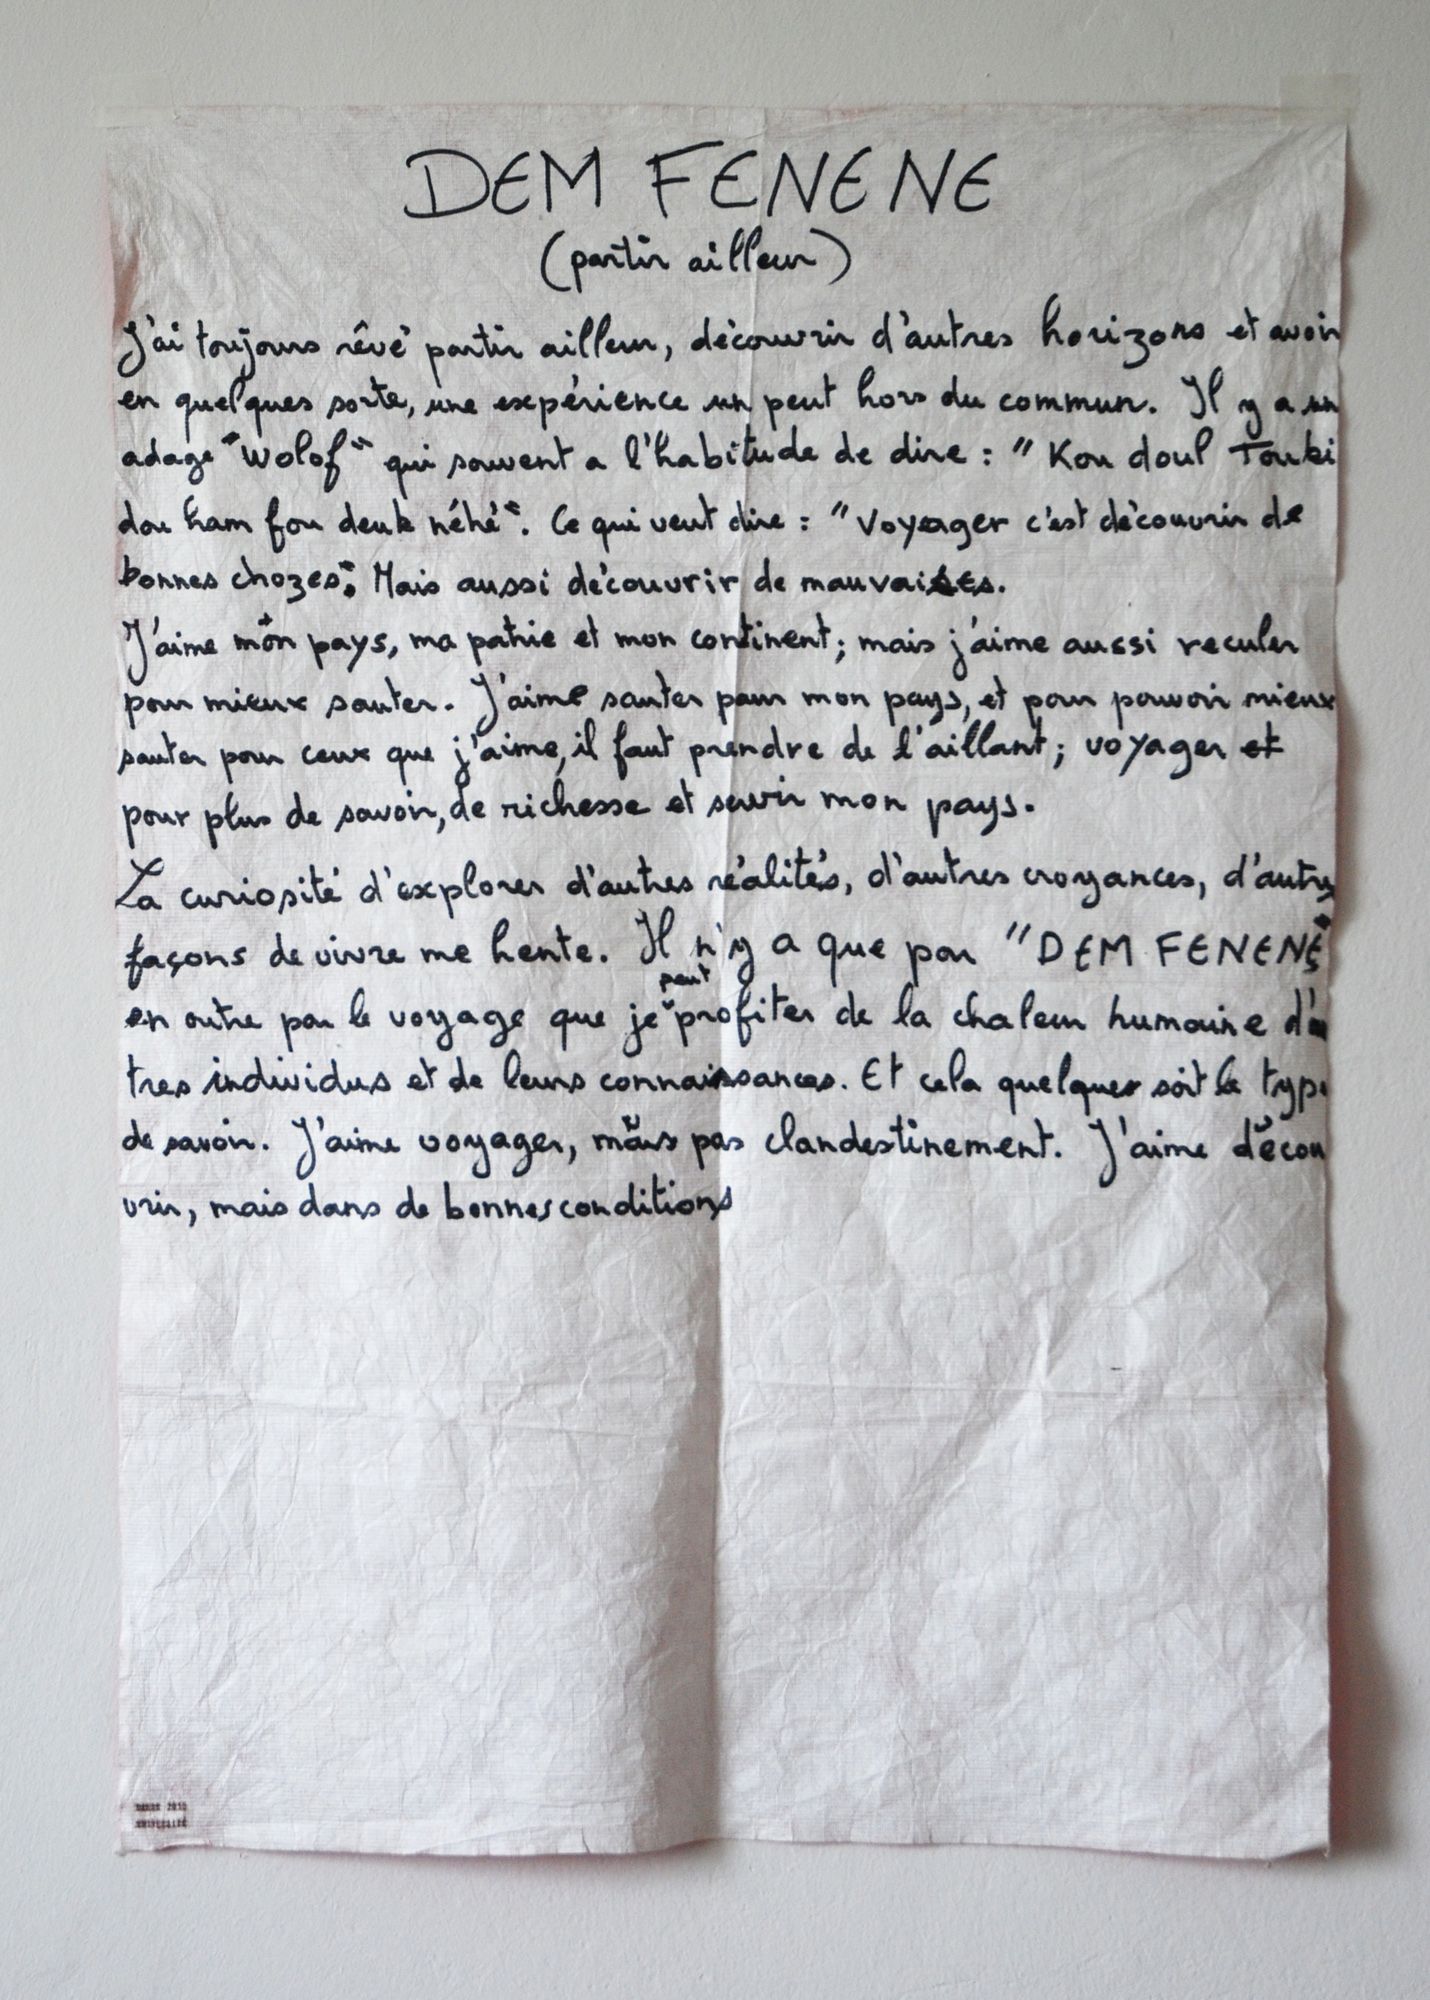 DEM FENENE
(partir ailleur)
J'ai toujours rêvé partir ailleur, découvrir d'autres horizons et avoir
en quelques sorte, une expérience un peut hors du commun. Il y a un
adage "Wolof" qui souvent a l'habitude de dire : "Kou doul Touki
dou ham fou deuk néhé". Ce qui veut dire : "Voyager c'est découvrir de
bonnes chozes". Mais aussi découvrir de mauvaises.
J'aime mon pays, ma patrie et mon continent; mais j'aime aussi reculer
pour mieux sauter. J'aime sauter pour mon pays, et pour pouvoir mieux
sauter pour ceux que j'aime, il faut prendre de l'aillant; voyager et
pour plus de savoir, de richesse et servir mon pays.
La curiosité d'explorer d'autres réalités, d'autres croyances, d'autres
façons de vivre me hente. Il n'y a que par "DEM FENENE"
en outre par le voyage que je peut profiter de la chaleur humaine d'au
tres individus et de leurs connaissances. Et cela quelques soit le type
de savoir. J'aime voyager, mais pas clandestinement. J'aime décou
vrir, mais dans de bonnes conditions